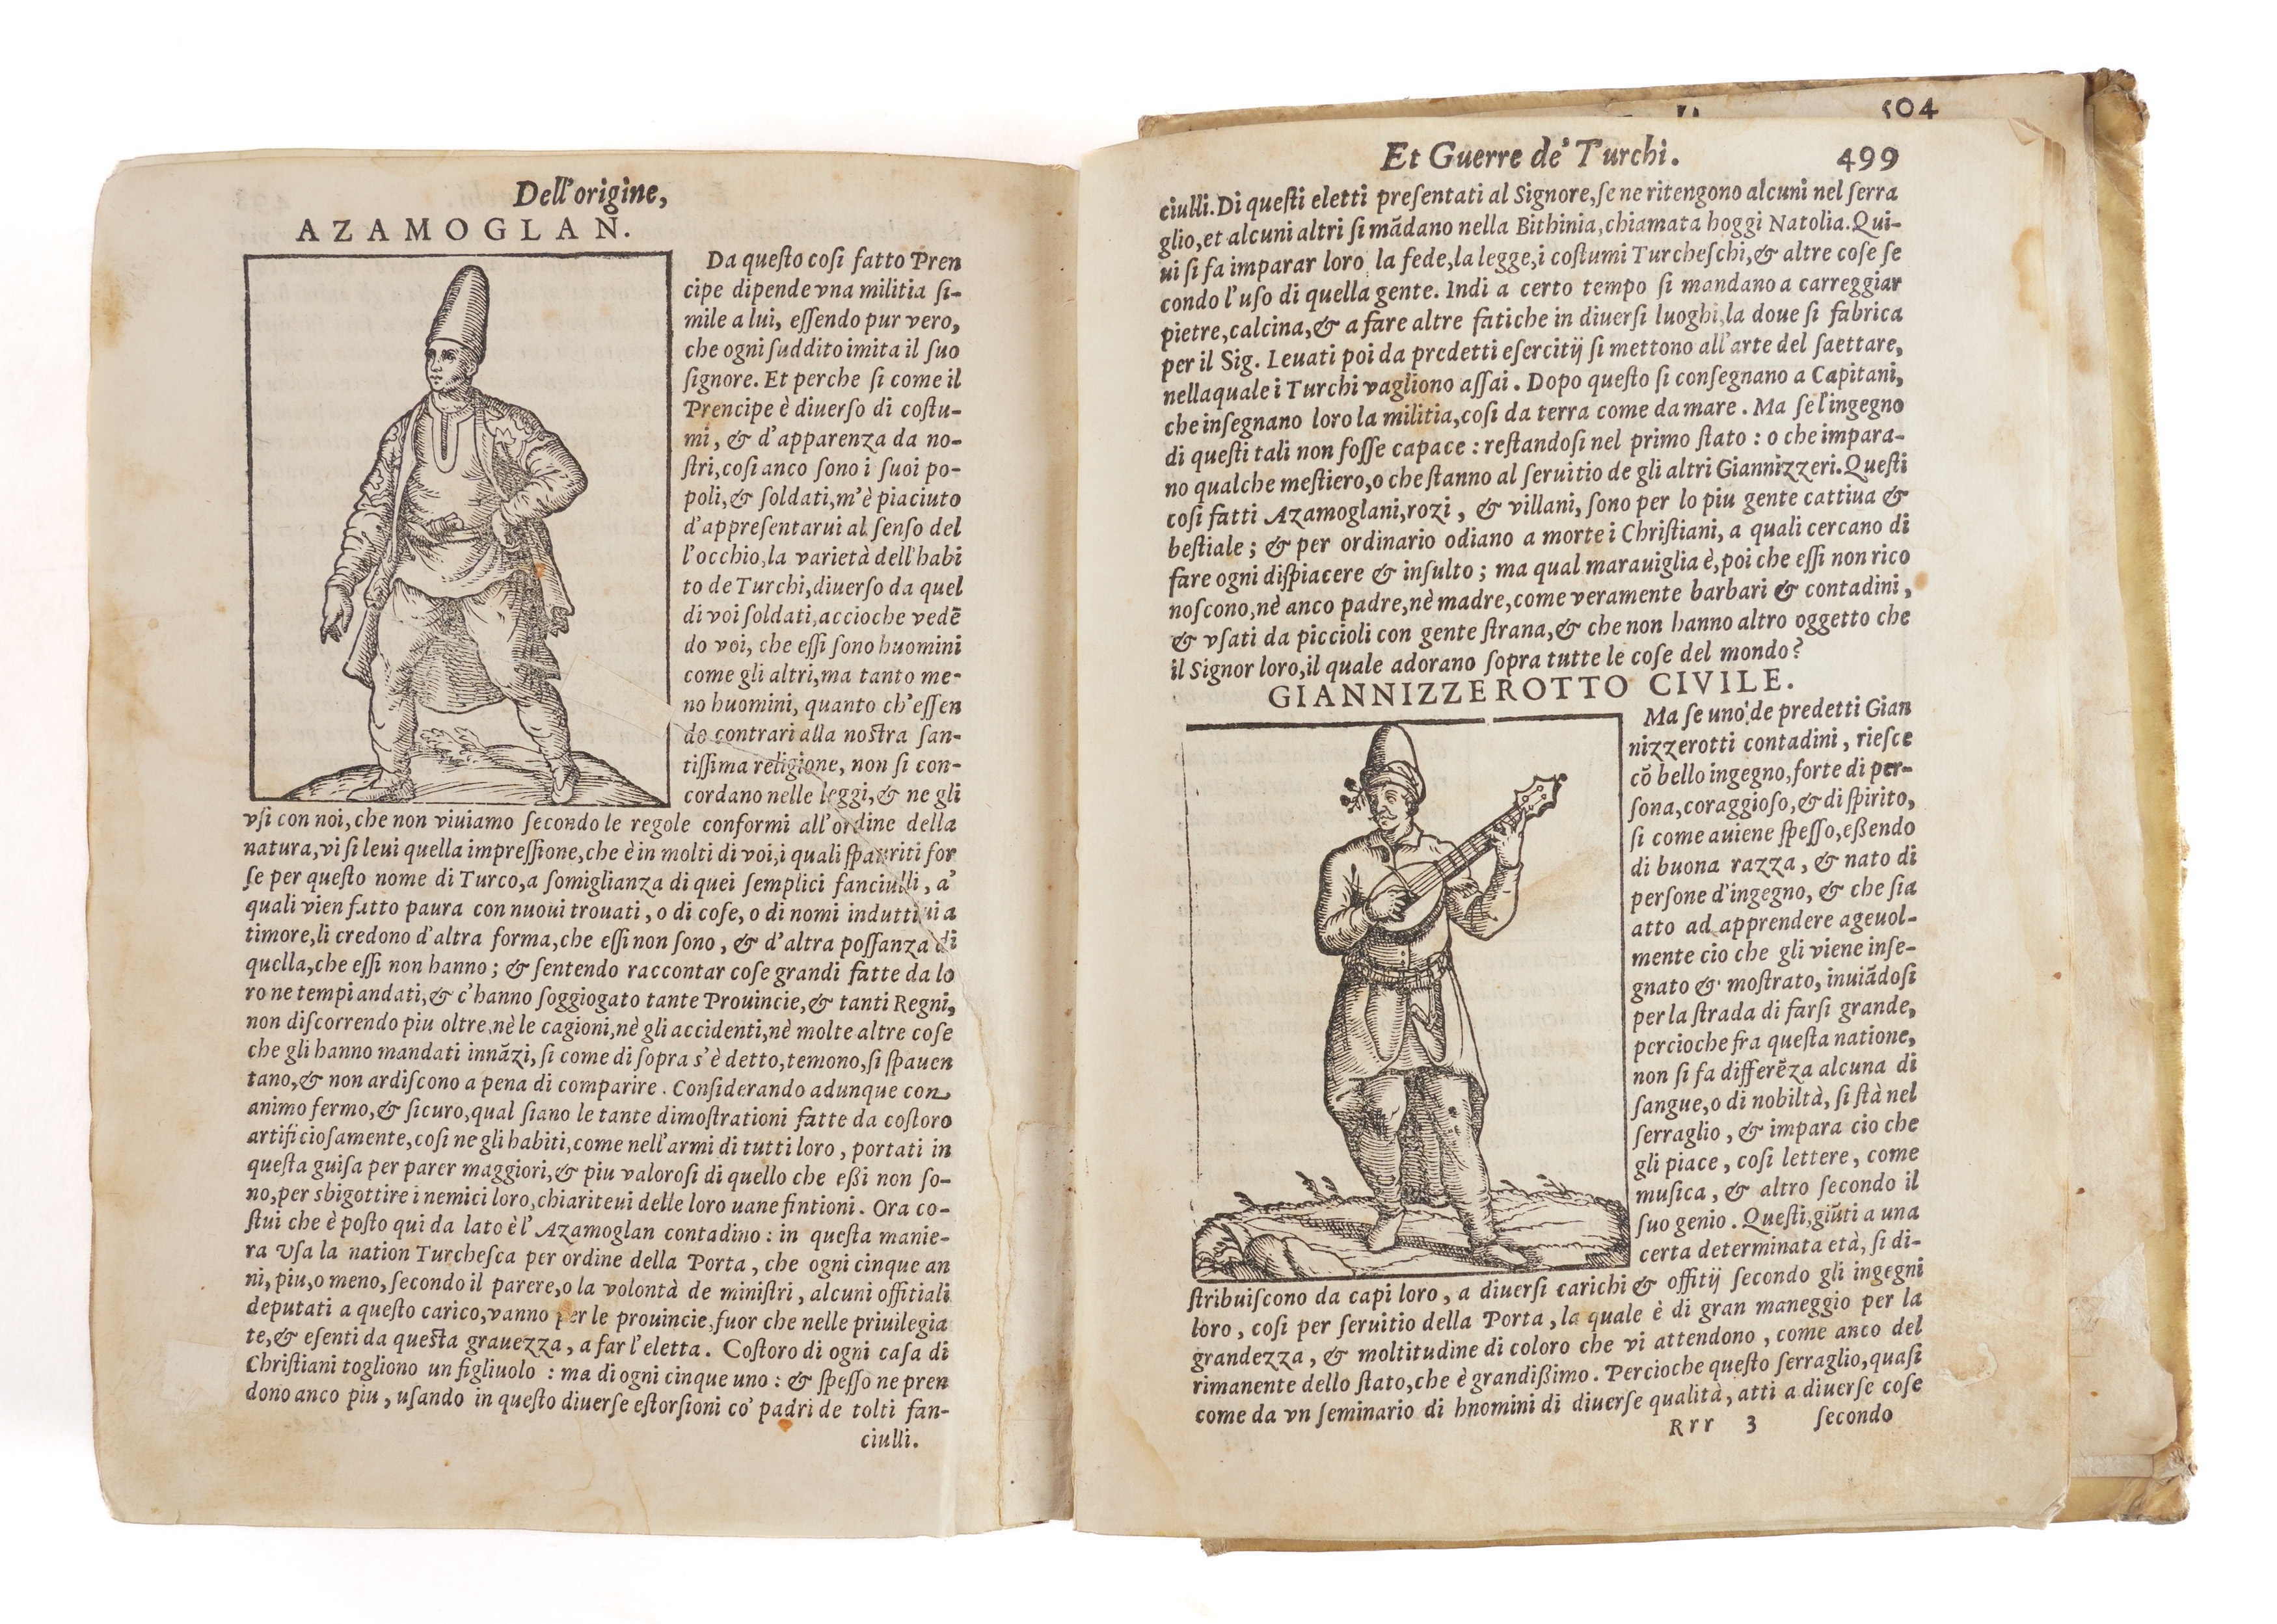 Dell'origine,
AZAMOGLAN.
Da queſto coſi fatto Pren
cipe dipende vna militia ſi-
mile a lui, eſſendo pur vero,
che ogni ſuddito imita il ſuo
ſignore. Et perche ſi come il
Prencipe è diuerſo di coſtu-
mi, & d'apparenza da no-
ſtri, coſi anco ſono i ſuoi po-
poli, & ſoldati, m'è piaciuto
d'appreſentarui al ſenſo del
l'occhio, la varietà dell'habi
to de Turchi, diuerſo da quel
di voi ſoldati, accioche vedẽ
do voi, che eſſi ſono huomini
come gli altri, ma tanto me-
no huomini, quanto ch'eſſen
do contrari alla noſtra ſan-
tiſſima religione, non ſi con-
cordano nelle leggi, & ne gli
vſi con noi, che non viuiamo ſecondo le regole conformi all'ordine della
natura, vi ſi leui quella impreſſione, che è in molti di voi, i quali ſpauriti for
ſe per queſto nome di Turco, a ſomiglianza di quei ſemplici fanciulli, a'
quali vien fatto paura con nuoui trouati, o di coſe, o di nomi induttiui a
timore, li credono d'altra forma, che eſſi non ſono, & d'altra poſſanza di
quella, che eſſi non hanno; & ſentendo raccontar coſe grandi fatte da lo
ro ne tempi andati, & c'hanno ſoggiogato tante Prouincie, & tanti Regni,
non diſcorrendo piu oltre, nè le cagioni, nè gli accidenti, nè molte altre coſe
che gli hanno mandati innãzi, ſi come di ſopra s'è detto, temono, ſi ſpauen
tano, & non ardiſcono a pena di comparire. Conſiderando adunque con
animo fermo, & ſicuro, qual ſiano le tante dimoſtrationi fatte da coſtoro
artificioſamente, coſi ne gli habiti, come nell'armi di tutti loro, portati in
queſta guiſa per parer maggiori, & piu valoroſi di quello che eßi non ſo-
no, per sbigottire i nemici loro, chiariteui delle loro uane fintioni. Ora co-
ſtui che è poſto qui da lato è l'Azamoglan contadino: in queſta manie-
ra Vſa la nation Turcheſca per ordine della Porta, che ogni cinque an
ni, piu, o meno, ſecondo il parere, o la volontà de miniſtri, alcuni offitiali
deputati a queſto carico, vanno per le prouincie, fuor che nelle priuilegia
te, & eſenti da queſta grauezza, a far l'eletta. Coſtoro di ogni caſa di
Chriſtiani togliono un figliuolo: ma di ogni cinque uno: & ſpeſſo ne pren
dono anco piu, uſando in queſto diuerſe eſtorſioni co' padri de tolti fan-
ciulli.
504
Et Guerre de' Turchi. 499
ciulli. Di queſti eletti preſentati al Signore, ſe ne ritengono alcuni nel ſerra
glio, et alcuni altri ſi mãdano nella Bithinia, chiamata hoggi Natolia. Qui-
ui ſi fa imparar loro la fede, la legge, i coſtumi Turcheſchi, & altre coſe ſe
condo l'uſo di quella gente. Indi a certo tempo ſi mandano a carreggiar
pietre, calcina, & a fare altre fatiche in diuerſi luoghi, la doue ſi fabrica
per il Sig. Leuati poi da predetti eſercitij ſi mettono all'arte del ſaettare,
nella quale i Turchi vagliono aſſai. Dopo queſto ſi conſegnano a Capitani,
che inſegnano loro la militia, coſi da terra come da mare. Ma ſe l'ingegno
di queſti tali non foſſe capace: reſtandoſi nel primo ſtato: o che impara-
no qualche meſtiero, o che ſtanno al ſeruitio de gli altri Giannizzeri. Queſti
coſi fatti Azamoglani, rozi, & villani, ſono per lo piu gente cattiua &
beſtiale; & per ordinario odiano a morte i Chriſtiani, a quali cercano di
fare ogni diſpiacere & inſulto; ma qual marauiglia è, poi che eſſi non rico
noſcono, nè anco padre, nè madre, come veramente barbari & contadini,
& vſati da piccioli con gente ſtrana, & che non hanno altro oggetto che
il Signor loro, il quale adorano ſopra tutte le coſe del mondo?
GIANNIZZEROTTO CIVILE.
Ma ſe uno de predetti Gian
nizzerotti contadini, rieſce
cõ bello ingegno, forte di per-
ſona, coraggioſo, & di ſpirito,
ſi come auiene ſpeſſo, eßendo
di buona razza, & nato di
perſone d'ingegno, & che ſia
atto ad apprendere ageuol-
mente cio che gli viene inſe-
gnato & moſtrato, inuiãdoſi
per la ſtrada di farſi grande,
percioche fra queſta natione,
non ſi fa differẽza alcuna di
ſangue, o di nobiltà, ſi ſtà nel
ſerraglio, & impara cio che
gli piace, coſi lettere, come
muſica, & altro ſecondo il
ſuo genio. Queſti, giũti a una
certa determinata età, ſi di-
ſtribuiſcono da capi loro, a diuerſi carichi & offitij ſecondo gli ingegni
loro, coſi per ſeruitio della Porta, la quale è di gran maneggio per la
grandezza, & moltitudine di coloro che vi attendono, come anco del
rimanente dello ſtato, che è grandißimo. Percioche queſto ſerraglio, quaſi
come da vn ſeminario di hnomini di diuerſe qualità, atti a diuerſe coſe
Rrr 3 ſecondo